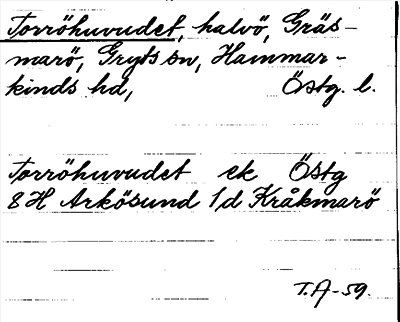 Torröhuvudet, halvö, Gräs-
marö, Gryts sn, Hammar-
kinds hd, Östg. l.
Torröhuvudet ek Östg
8H Arkösund 1d Kråkmarö
T.A-59.